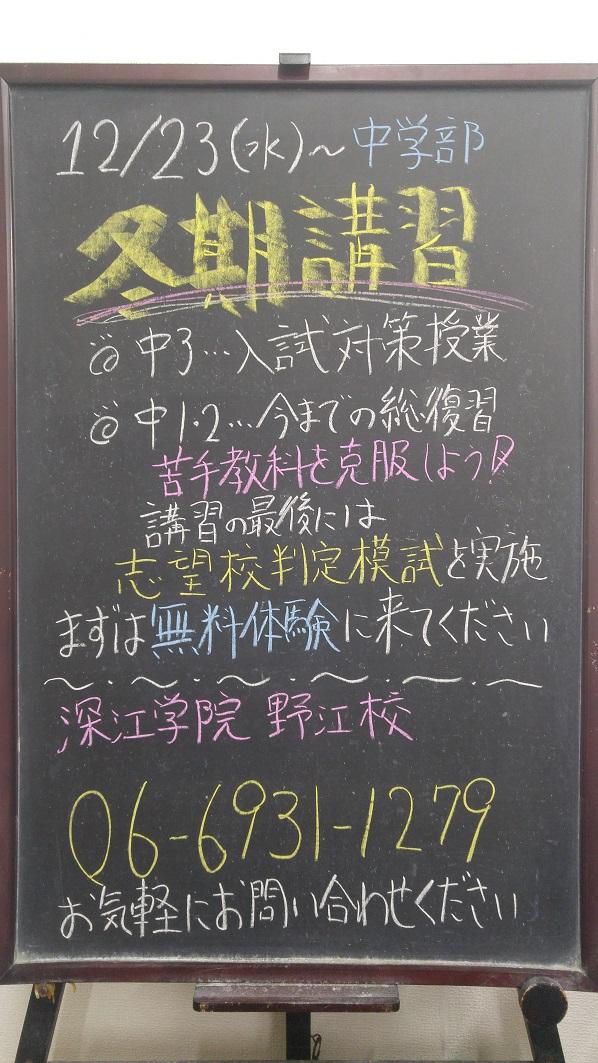 12/23(水)～ 中学部
冬期講習
◎ 中3…入試対策授業
◎ 中1・2…今までの総復習
苦手教科を克服しよう!
講習の最後には
志望校判定模試を実施
まずは無料体験に来てください
～・～・～・～・～・～
深江学院 野江校
06-6931-1279
お気軽にお問い合わせください